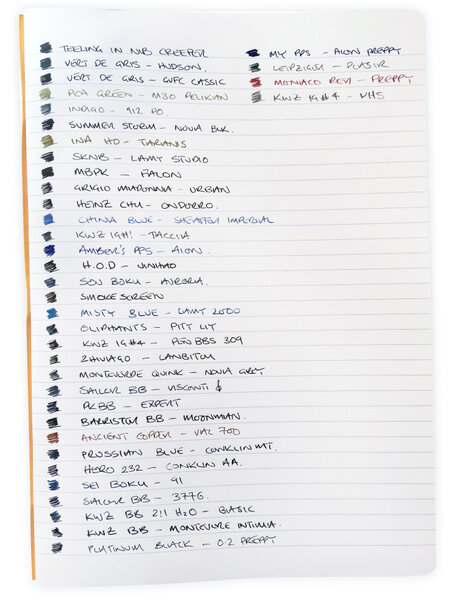 TEELING IN NIB CREEPER
VERT DE GRIS - HUDSON.
VERT DE GRIS - GVFC CLASSIC
PEA GREEN - M30 PELIKAN
INDIGO - 912 PO.
SUMMER STORM - NOVA BLK.
INA HO - TARANIS
SKNB - LAMY STUDIO
MBPK - FALCON
GRIGIO MADONNA - URBAN
HEINZ CHU - ONDORRO.
CHINA BLUE - SHEAFFER IMPERIAL
KWZ IG#1 - TACCIA
AMBER'S PPS - AION.
H.O.D -
SOU BOKU - AURORA.
SMOKESCREEN
MISTY BLUE - LAMY 2000
OLIPHANTS - PITY LIT
KWZ IG#4 - PENBBS 309
ZHIVAGO - LANBITOU
MONTEVERDE QUINK - NOVA GREY
SAILOR BB - VISCONTI
PKBB - EXPERT
BARRISTER BB - MOONMAN.
ANCIENT COPPER - VAC 700
PRUSSIAN BLUE - CONKLIN MT.
HERO 232 - CONKLIN AA.
SEI BOKU - 91
SAILOR BB - 3776.
KWZ BB 2:1 H2O - BASIC
KWZ BB - MONTEVERDE INTIMA.
PLATINUM BLACK - 0.2 PREPPY
MY PPS - AION PREPPY
LEIPZIGER - PLAISIR
MONACO RED - PREPPY
KWZ IG#4 - VHS